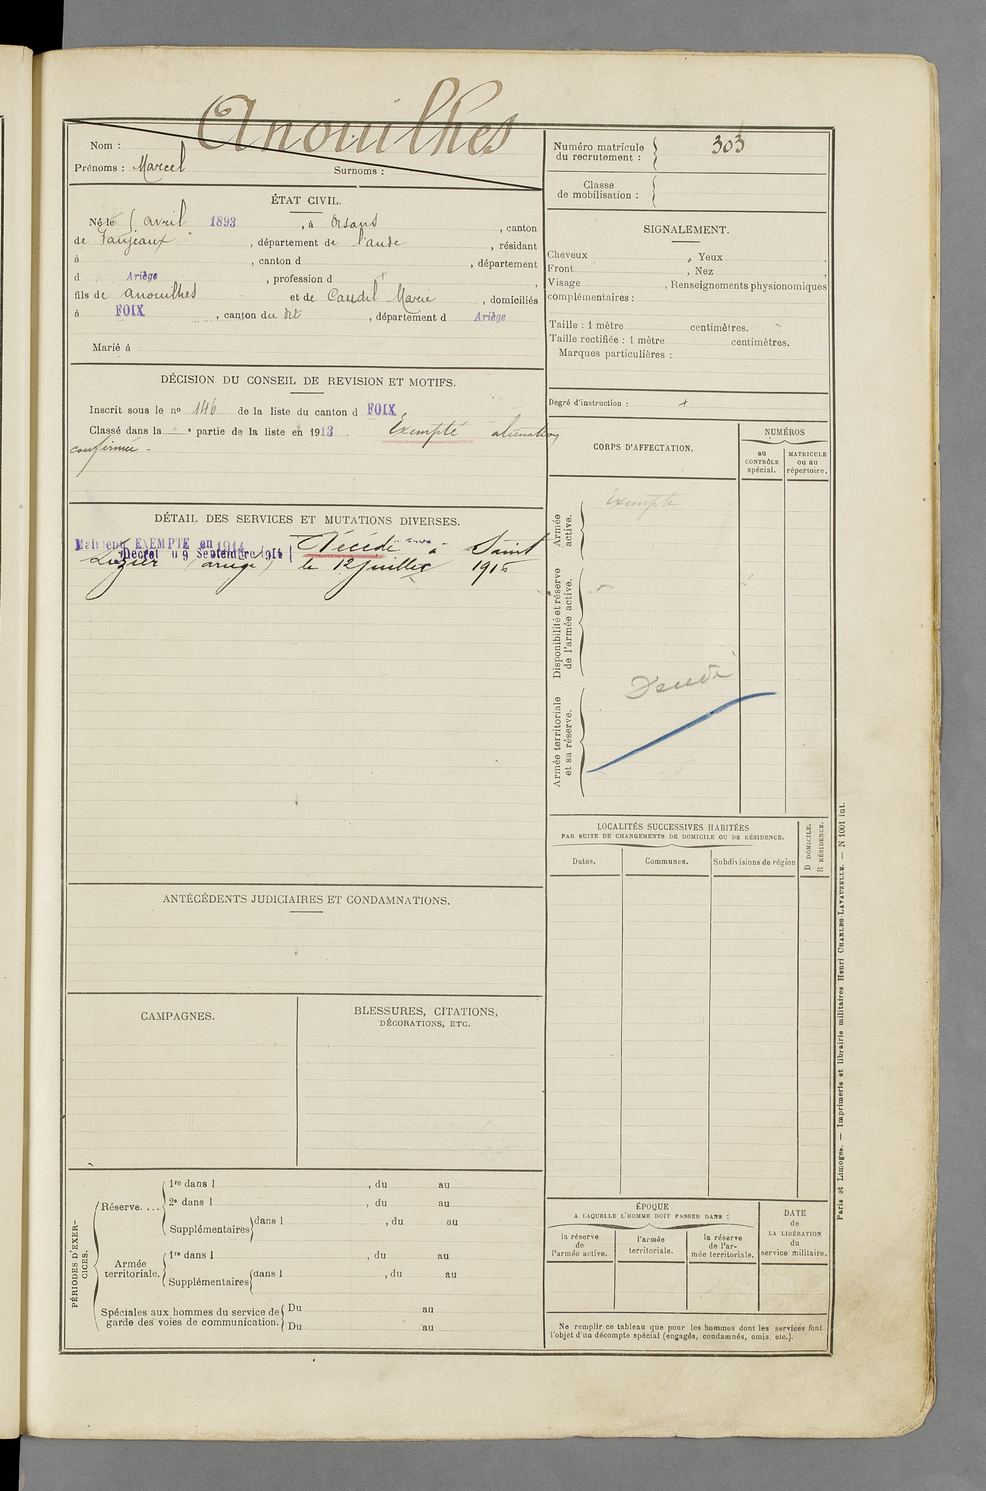 Anouilhes
Nom :
Prénoms : Marcel Surnoms :
Numéro matricule du recrutement : 303
Classe de mobilisation :
ÉTAT CIVIL.
Né le 5 avril 1893, à Orsans, canton
de Fanjeaux, département de l'aude, résidant
à , canton d , département
d Ariège, profession d x,
fils de anouilhes et de Caudil Marie, domiciliés
à FOIX, canton du dit, département d Ariège
Marié à
SIGNALEMENT.
Cheveux , Yeux ,
Front , Nez ,
Visage , Renseignements physionomiques
complémentaires :
Taille : 1 mètre centimètres.
Taille rectifiée : 1 mètre centimètres.
Marques particulières :
Degré d'instruction : x
DÉCISION DU CONSEIL DE REVISION ET MOTIFS.
Inscrit sous le no 146 de la liste du canton d FOIX
Classé dans la e partie de la liste en 1913. Exempté aliénation
confirmée -
CORPS D'AFFECTATION.
NUMÉROS
au CONTRÔLE spécial.
MATRICULE ou au répertoire.
Armée active.
Exempté
Disponibilité et réserve de l'armée active.
Armée territoriale et sa réserve.
DÉTAIL DES SERVICES ET MUTATIONS DIVERSES.
Maintenu EXEMPTE en 1914
Décret du 9 Septembre 1914
Décédé à Saint
Lizier (ariège) le 12 juillet 1915
LOCALITÉS SUCCESSIVES HABITÉES
PAR SUITE DE CHANGEMENTS DE DOMICILE OU DE RÉSIDENCE.
Dates.
Communes.
Subdivisions de région
D DOMICILE.
R RÉSIDENCE.
ANTÉCÉDENTS JUDICIAIRES ET CONDAMNATIONS.
CAMPAGNES.
BLESSURES, CITATIONS,
DÉCORATIONS, ETC.
PÉRIODES D'EXERCICES.
Réserve....
1re dans l , du au
2e dans l , du au
Supplémentaires dans l , du au
Armée territoriale.
1re dans l , du au
Supplémentaires dans l , du au
Spéciales aux hommes du service de
garde des voies de communication.
Du au
Du au
ÉPOQUE
A LAQUELLE L'HOMME DOIT PASSER DANS :
la réserve de l'armée active.
l'armée territoriale.
la réserve de l'armée territoriale.
DATE de LA LIBÉRATION du service militaire.
Ne remplir ce tableau que pour les hommes dont les services font
l'objet d'un décompte spécial (engagés, condamnés, omis, etc.).
Paris et Limoges. — Imprimerie et librairie militaires Henri CHARLES-LAVAUZELLE. — N 1001 int.